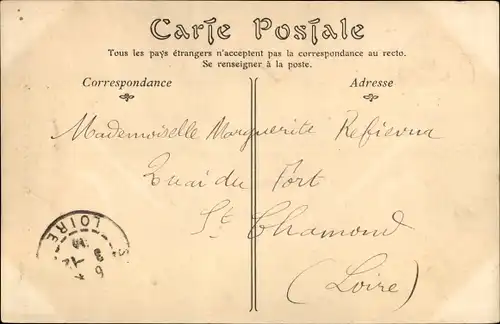 Carte Postale
Tous les pays étrangers n'acceptent pas la correspondance au recto.
Se renseigner à la poste.
Correspondance
Adresse
Mademoiselle Marguerite
Quai du Fort
St Chamond
(Loire)
LOIRE